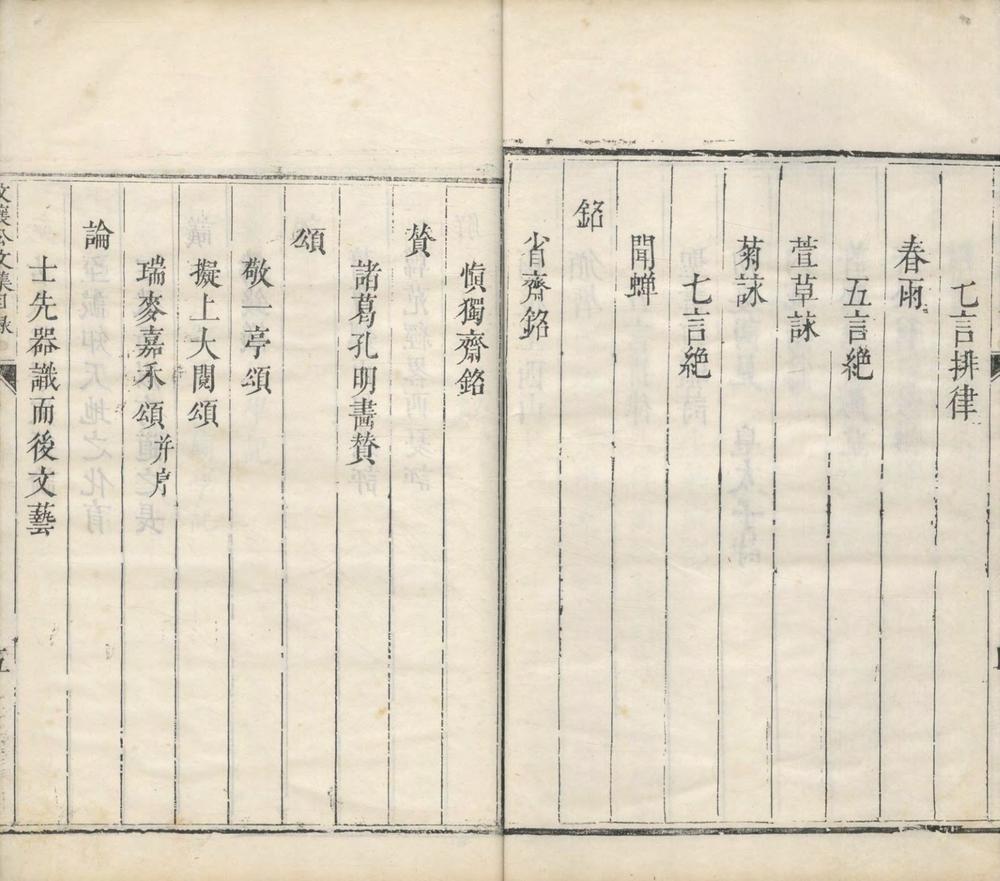 七言排律
春雨
五言絶
萱草詠
菊詠
七言絶
聞蟬
銘
省齋銘
愼獨齋銘
賛
諸葛孔明畵賛
頌
敬一亭頌
擬上大閱頌
瑞麥嘉禾頌并序
論
士先器識而後文藝
文襄公文集目錄
五